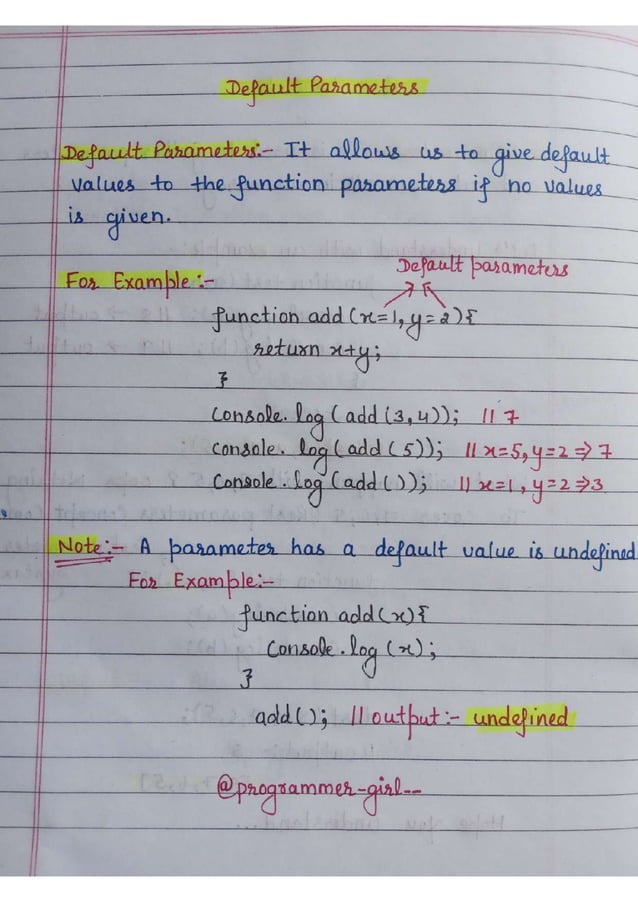 Default Parameters
Default Parameters:- It allows us to give default
values to the function parameters if no values
is given.
Default parameters
For Example:-
function add(x=1,y=2){
return x+y;
}
Console.log(add(3,4)); || 7
console.log(add(5)); || x=5,y=2=>7
Console.log(add()); || x=1,y=2=>3
Note:- A parameter has a default value is undefined
For Example:-
function add(x){
Console.log(x);
}
add(); || output:- undefined
@programmer-girl--